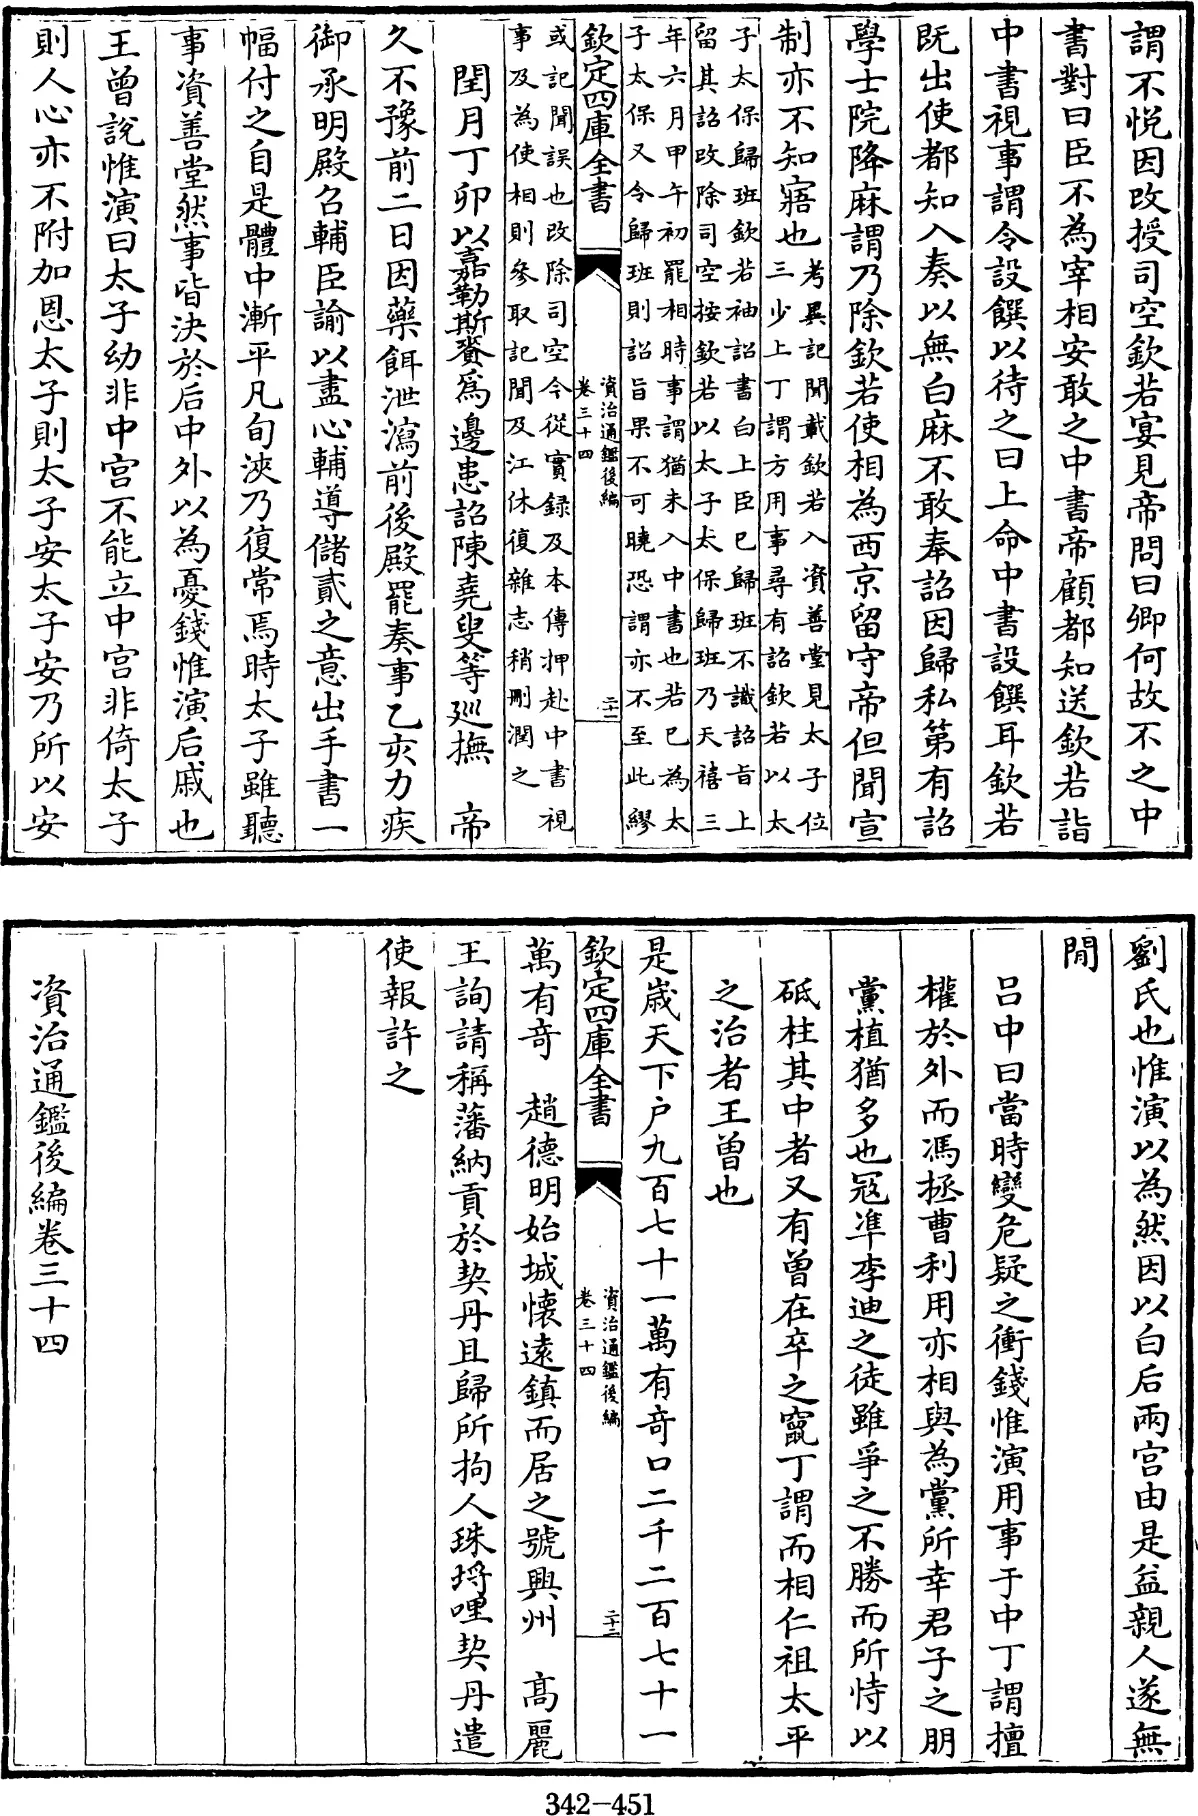 謂不悅因改授司空欽若宴見帝問曰卿何故不之中
書對曰臣不為宰相安敢之中書帝顧都知送欽若詣
中書視事謂令設饌以待之曰上命中書設饌耳欽若
既出使都知入奏以無白麻不敢奉詔因歸私第有詔
學士院降麻謂乃除欽若使相為西京留守帝但聞宣
制亦不知寤也
考異記聞載欽若入資善堂見太子位
三少上丁謂方用事尋有詔欽若以太
子太保歸班欽若袖詔書白上臣已歸班不識詔旨上
留其詔改除司空按欽若以太子太保歸班乃天禧三
年六月甲午初罷相時事謂猶未入中書也若已為太
子太保又令歸班則詔旨果不可曉恐謂亦不至此繆
欽定四庫全書
資治通鑑後編
卷三十四
三十一
或記聞誤也改除司空今從實錄及本傳押赴中書視
事及為使相則參取記聞及江休復雜志稍刪潤之
閏月丁卯以嘉勒斯賚為邊患詔陳堯叟等廵撫 帝
久不豫前二日因藥餌泄瀉前後殿罷奏事乙亥力疾
御承明殿召輔臣諭以盡心輔導儲貳之意出手書一
幅付之自是體中漸平凡旬浹乃復常焉時太子雖聽
事資善堂然事皆決於后中外以為憂錢惟演后戚也
王曾說惟演曰太子幼非中宮不能立中宮非倚太子
則人心亦不附加恩太子則太子安太子安乃所以安
劉氏也惟演以為然因以白后兩宮由是益親人遂無
閒
呂中曰當時變危疑之衝錢惟演用事于中丁謂擅
權於外而馮拯曹利用亦相與為黨所幸君子之朋
黨植猶多也寇準李迪之徒雖爭之不勝而所恃以
砥柱其中者又有曾在卒之竄丁謂而相仁祖太平
之治者王曾也
是嵗天下户九百七十一萬有奇口二千二百七十一
欽定四庫全書
資治通鑑後編
卷三十四
三十二
萬有奇 趙德明始城懷遠鎮而居之號興州 高麗
王詢請稱藩納貢於契丹且歸所拘人珠埒哩契丹遣
使報許之
資治通鑑後編卷三十四
342-451